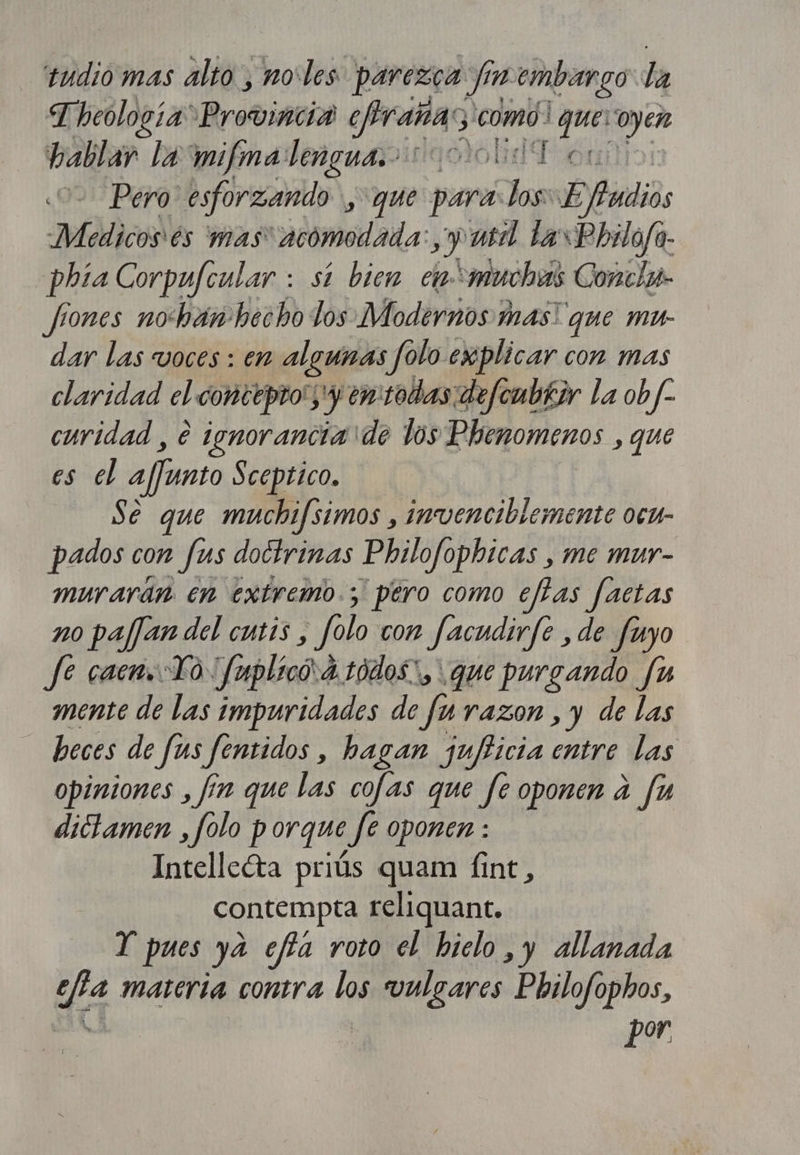 tudio mas alto , no les parezca ſin embargo la
Theología Provincia eſtraña ; como que oyen
hablar la miſma lengua.
Pero esforzando , que para los Eſtudios
Medicos es mas acomodada , y util la Philoſo-
phia Corpuſcular : sí bien en muchas Conclu-
ſiones no han hecho los Modernos mas que mu-
dar las voces : en algunas ſolo explicar con mas
claridad el concepto ; y en todas deſcubrir la obſ-
curidad , è ignorancia de los Phenomenos , que
es el aſſunto Sceptico.
Sè que muchiſsimos , invenciblemente ocu-
pados con ſus doctrinas Philoſophicas , me mur-
murarán en extremo ; pero como eſtas ſaetas
no paſſan del cutis , ſolo con ſacudirſe , de ſuyo
ſe caen. Yo ſuplico à todos , que purgando ſu
mente de las impuridades de ſu razon , y de las
heces de ſus ſentidos , hagan juſticia entre las
opiniones , ſin que las coſas que ſe oponen à ſu
dictamen , ſolo porque ſe oponen :
Intellecta priús quam ſint ,
contempta reliquant.
Y pues yà eſtá roto el hielo , y allanada
eſta materia contra los vulgares Philoſophos,
por